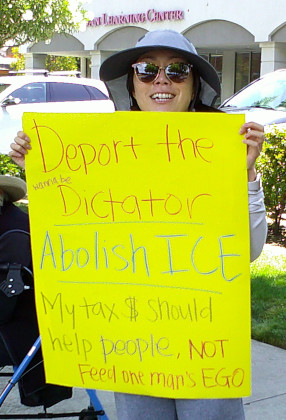 Learning Center
Deport the
wanna be
Dictator
Abolish ICE
My tax $ should
help people, NOT
Feed one man's EGO